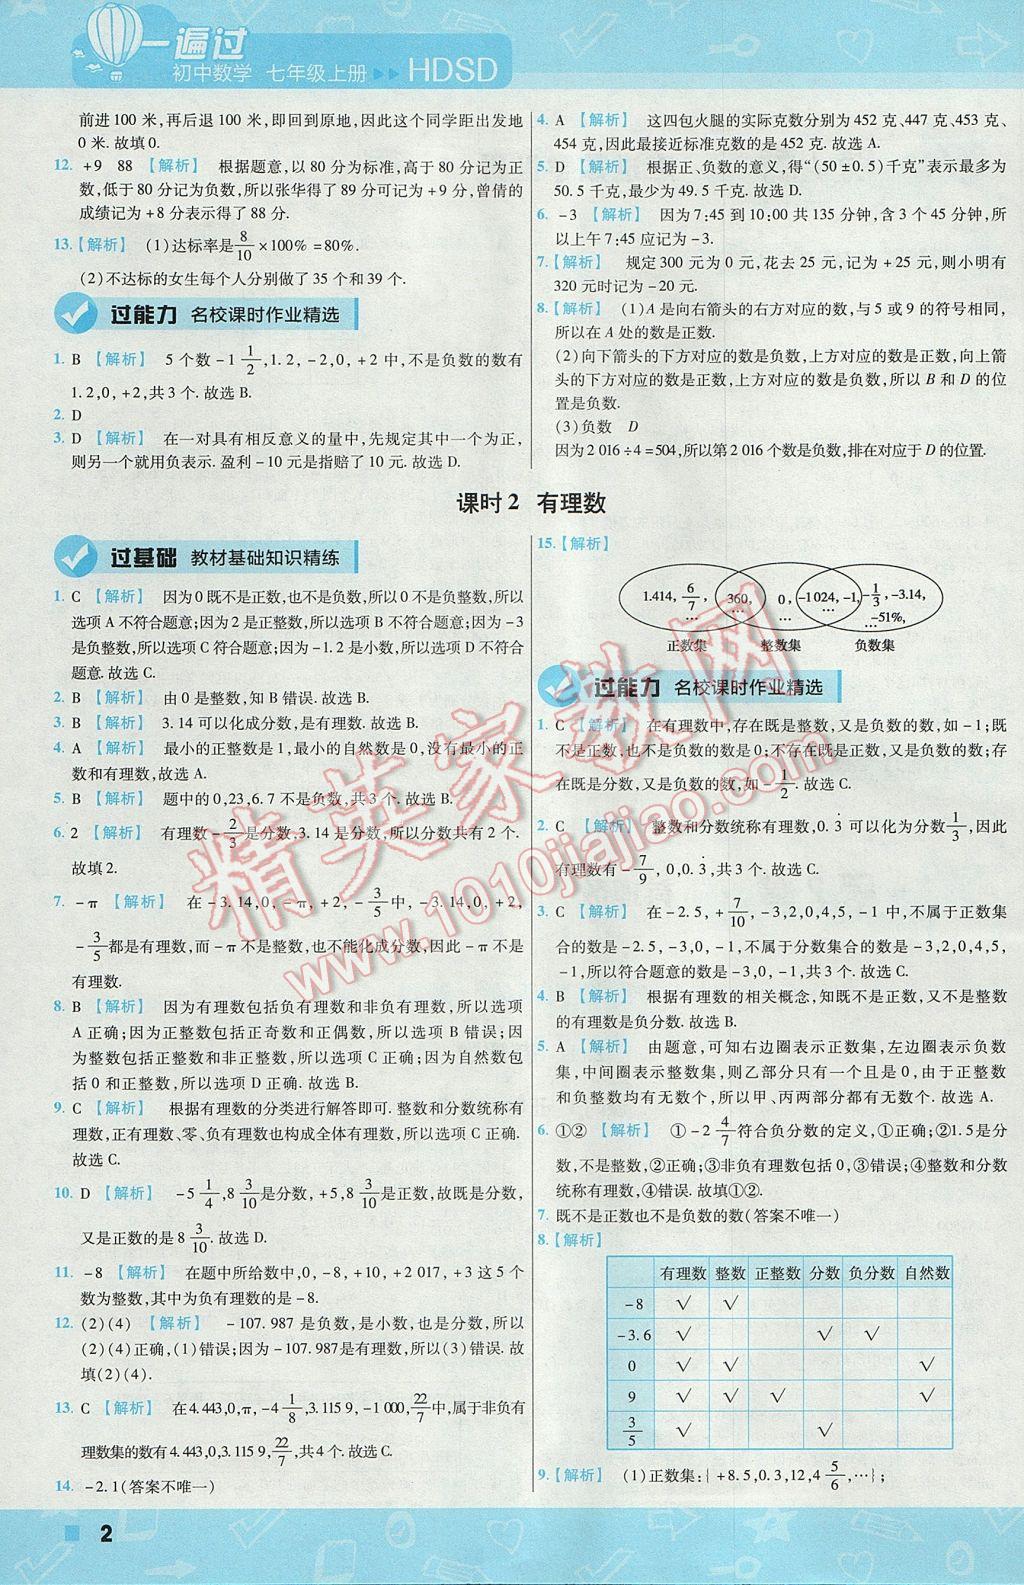 一遍过
初中数学 七年级上册 HDSD
前进100米,再后退100米,即回到原地,因此这个同学距出发地
0米.故填0.
12. +9 88 【解析】 根据题意,以80分为标准,高于80分记为正
数,低于80分记为负数,所以张华得了89分可记为+9分,曾倩的
成绩记为+8分表示得了88分.
13.【解析】 (1)达标率是8/10×100%=80%.
(2)不达标的女生每个人分别做了35个和39个.
过能力 名校课时作业精选
1. B 【解析】 5个数-1 1/2,1.2,-2,0,+2中,不是负数的数有
1.2,0,+2,共3个.故选B.
2. D
3. D 【解析】 在一对具有相反意义的量中,先规定其中一个为正,
则另一个就用负表示.盈利-10元是指赔了10元.故选D.
4. A 【解析】 这四包火腿的实际克数分别为452克、447克、453克、
454克,因此最接近标准克数的是452克.故选A.
5. D 【解析】 根据正、负数的意义,得“(50±0.5)千克”表示最多为
50.5千克,最少为49.5千克.故选D.
6. -3 【解析】 因为7:45到10:00共135分钟,含3个45分钟,所
以上午7:45应记为-3.
7.【解析】 规定300元为0元,花去25元,记为+25元,则小明有
320元时记为-20元.
8.【解析】 (1)A是向右箭头的右方对应的数,与5或9的符号相同,
所以在A处的数是正数.
(2)向下箭头的下方对应的数是负数,上方对应的数是正数,向上箭
头的下方对应的数是正数,上方对应的数是负数,所以B和D的位
置是负数.
(3)负数 D
因为2 016÷4=504,所以第2 016个数是负数,排在对应于D的位置.
课时2 有理数
过基础 教材基础知识精练
1. C 【解析】 因为0既不是正数,也不是负数,所以0不是负整数,所以
选项A不符合题意;因为2是正整数,所以选项B不符合题意;因为-3
是负整数,所以选项C符合题意;因为-1.2是小数,所以选项D不符合
题意.故选C.
2. B 【解析】 由0是整数,知B错误.故选B.
3. B 【解析】 3.14可以化成分数,是有理数.故选B.
4. A 【解析】 最小的正整数是1,最小的自然数是0,没有最小的正
数和有理数,故选A.
5. B 【解析】 题中的0,23,6.7不是负数,共3个.故选B.
6. 2 【解析】 有理数-2/3是分数,3.14是分数,所以分数共有2个.
故填2.
7. -π 【解析】 在-3.14,0,-π,+2,-3/5中,-3.14,0,+2,
-3/5都是有理数,而-π不是整数,也不能化成分数,因此-π不是
有理数.
8. B 【解析】 因为有理数包括负有理数和非负有理数,所以选项
A正确;因为正整数包括正奇数和正偶数,所以选项B错误;因
为整数包括正整数和非正整数,所以选项C正确;因为自然数包
括0和正整数,所以选项D正确.故选B.
9. C 【解析】 根据有理数的分类进行解答即可.整数和分数统称有
理数,正有理数、零、负有理数也构成全体有理数,所以选项C正确.
故选C.
10. D 【解析】 -5 1/4,8 3/10是分数,+5,8 3/10是正数,故既是分数,
又是正数的是8 3/10.故选D.
11. -8 【解析】 在题中所给数中,0,-8,+10,+2 017,+3这5个
数为整数,其中为负有理数的是-8.
12. (2)(4) 【解析】 -107.987是负数,是小数,也是分数,所以
(2)(4)正确,(1)错误;因为-107.987是有理数,所以(3)错误.故
填(2)(4).
13. C 【解析】 在4.443,0,π,-4 1/8,3.115 9,-1 000,22/7中,属于非负有
理数集的数有4.443,0,3.115 9,22/7,共4个.故选C.
14. -2.1(答案不唯一)
15.【解析】
1.414,6/7,… 360,… 0,… -1 024,-1,… -1/3,-3.14,-51%,…
正数集 整数集 负数集
过能力 名校课时作业精选
1. C 【解析】 在有理数中,存在既是整数,又是负数的数,如-1;既
不是正数,也不是负数的数是0;不存在既是正数,又是负数的数;存
在既是分数,又是负数的数,如-1/2.故选C.
2. C 【解析】 整数和分数统称有理数,0.3̇可以化为分数1/3,因此
有理数有-7/9,0,0.3̇,共3个.故选C.
3. C 【解析】 在-2.5,+7/10,-3,2,0,4,5,-1中,不属于正数集
合的数是-2.5,-3,0,-1,不属于分数集合的数是-3,2,0,4,5,
-1,所以符合题意的数是-3,0,-1,共3个.故选C.
4. B 【解析】 根据有理数的相关概念,知既不是正数,又不是整数
的有理数是负分数.故选B.
5. A 【解析】 由题意,可知右边圈表示正数集,左边圈表示负数
集,中间圈表示整数集,则乙部分只有一个且是0,由于正整数
和负整数均有无数个,所以甲、丙两部分都有无数个.故选A.
6. ①② 【解析】 ①-2 4/7符合负分数的定义,①正确;②1.5是分
数,不是整数,②正确;③非负有理数包括0,③错误;④整数和分数
统称有理数,④错误.故填①②.
7. 既不是正数也不是负数的数(答案不唯一)
8.【解析】
有理数 整数 正整数 分数 负分数 自然数
-8 √ √
-3.6 √ √ √
0 √ √ √
9 √ √ √ √
3/5 √ √
9.【解析】 (1)正数集:{+8.5,0.3,12,4 5/6,…};
2
精英家教网
www.1010jiajiao.com